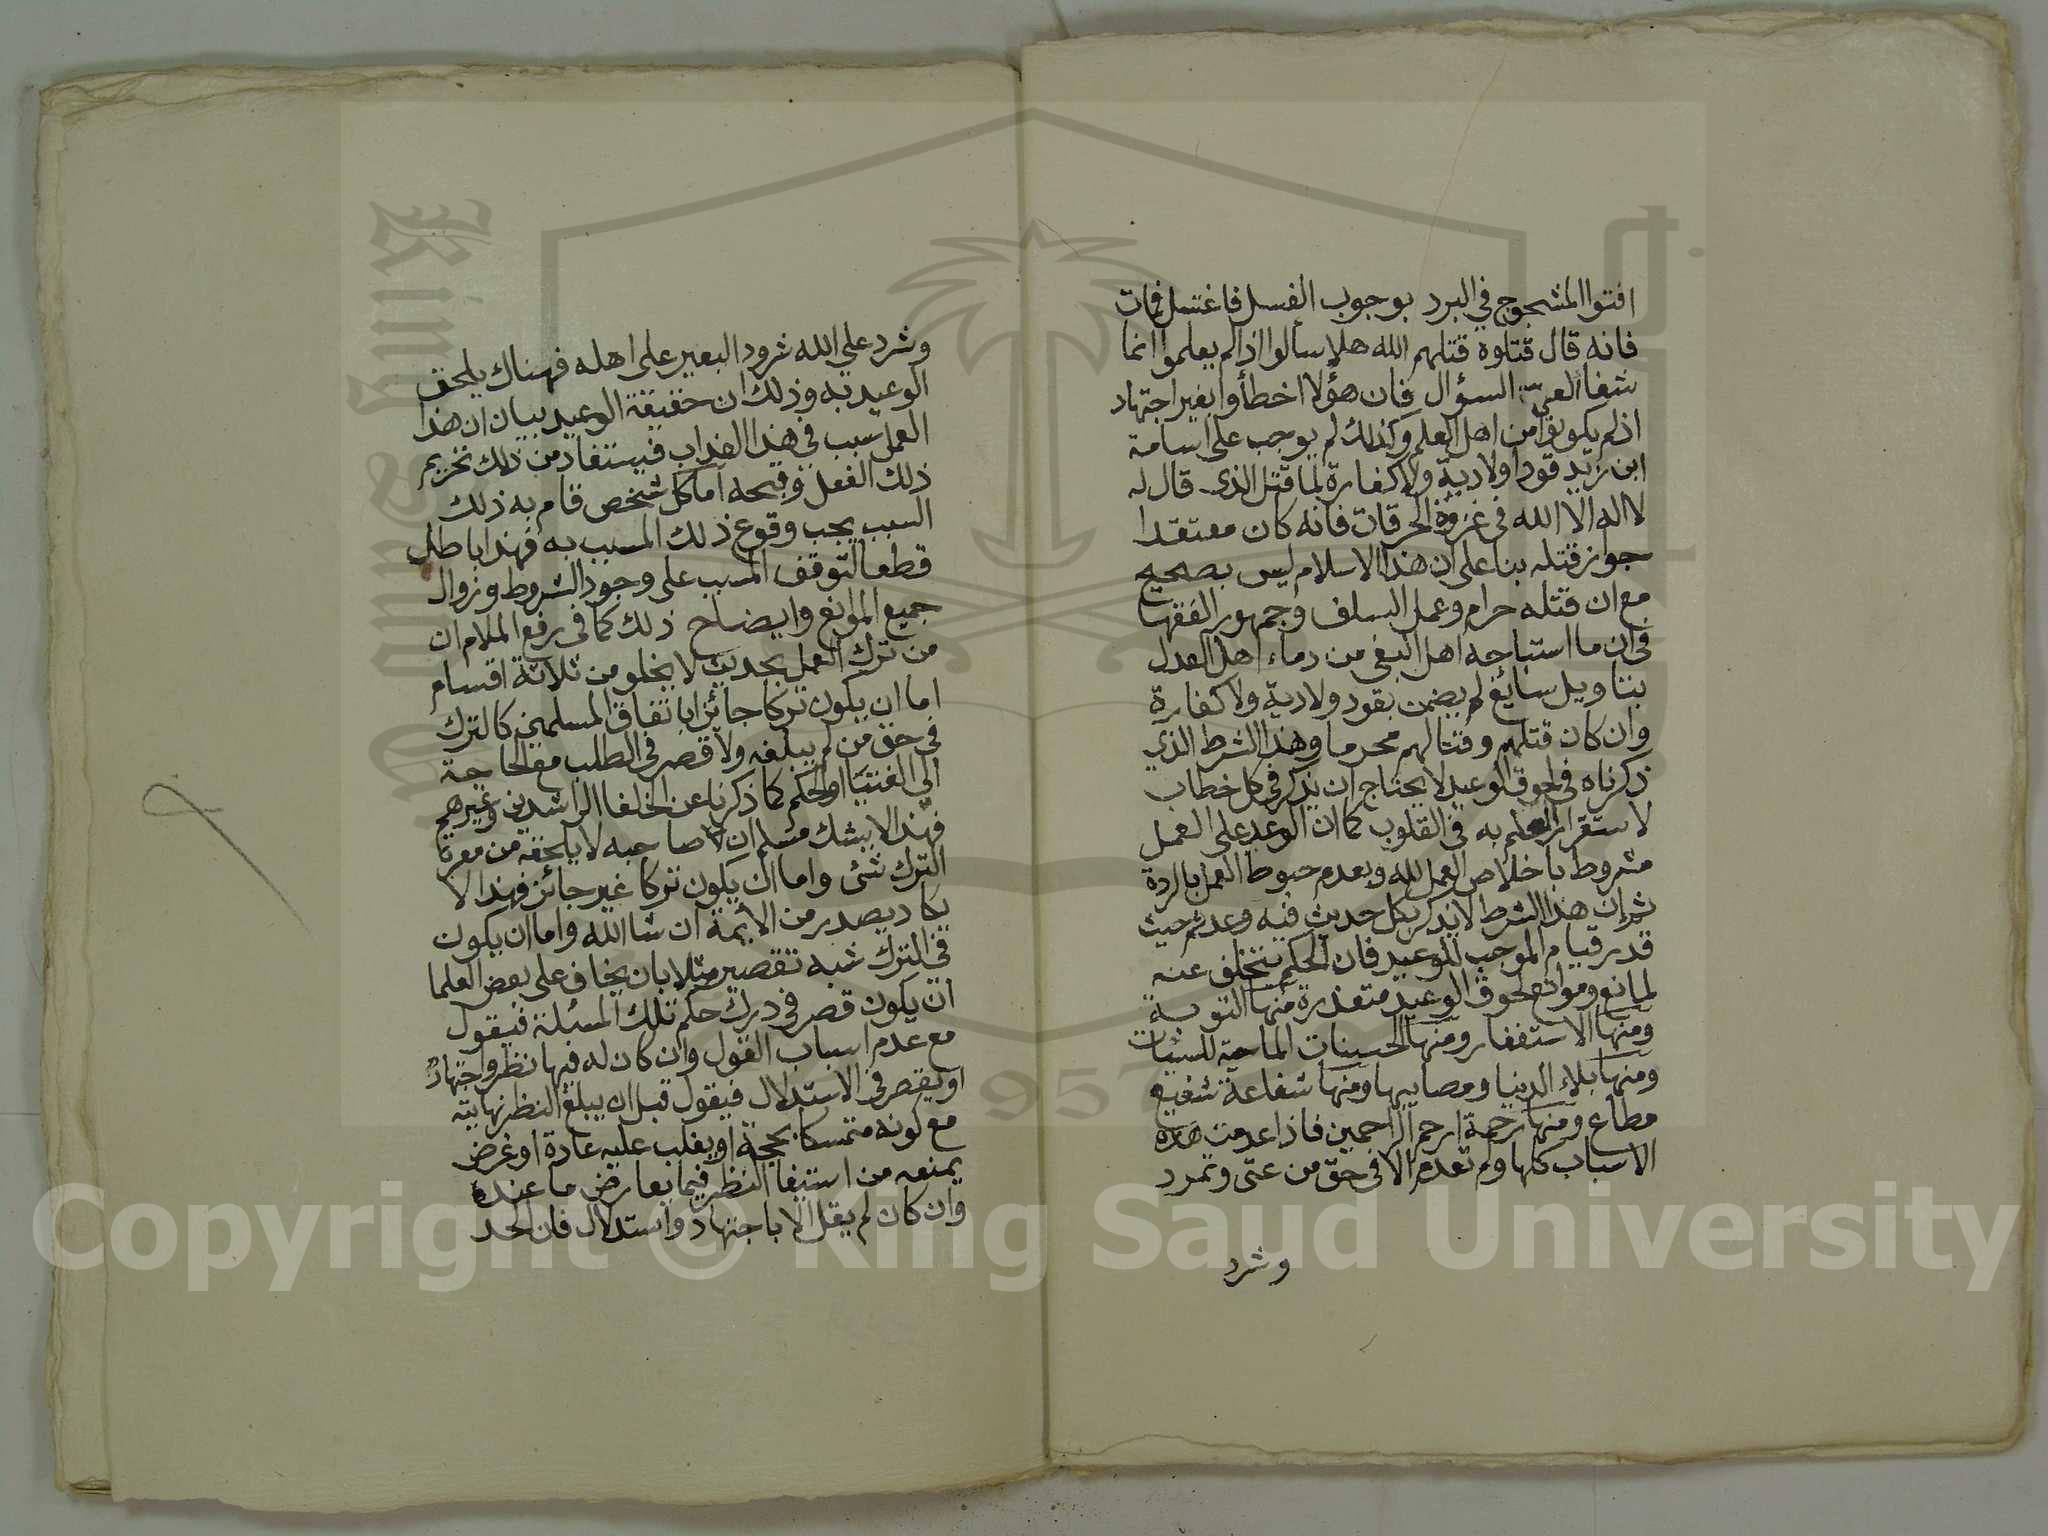 افتوا المشجوج في البرد بوجوب الغسل فاغتسل فمات
فانه قال قتلوه قتلهم الله هلا سألوا اذا لم يعلموا انما
شفا العيّ السؤال فان هؤلا اخطأوا بغير اجتهاد
اذ لم يكونوا من اهل العلم وكذلك لم يوجب على اسامة
ابن زيد قودا ولا دية ولا كفارة لما قتل الذي قال له
لا اله الا الله في غزوة الحرقات فانه كان معتقدا
جواز قتله بنا على ان هذا الاسلام ليس بصحيح
مع ان قتله حرام وعمل السلف وجمهور الفقها
في ان ما استباحه اهل البغي من دماء اهل العدل
بتاويل سايغ لم يضمن بقود ولا دية ولا كفارة
وان كان قتلهم وقتالهم محرما وهذا الشرط الذي
ذكرناه في لحوق الوعيد لا يحتاج ان يذكر في كل خطاب
لاستقرار العلم به في القلوب كما ان الوعد على العمل
مشروط باخلاص العمل لله وبعدم حبوط العمل بالردة
ثم ان هذا الشرط لا يذكر بكل حديث فيه وعد ثم حيث
قدر قيام الموجب للوعيد فان الحكم يتخلف عنه
لمانع وموانع لحوق الوعيد متعددة منها التوبة
ومنها الاستغفار ومنها الحسنات الماحية للسيئات
ومنها بلاء الدنيا ومصايبها ومنها شفاعة شفيع
مطاع ومنها رحمة ارحم الراحمين فاذا عدمت هذه
الاسباب كلها ولم تعدم الا في حق من عتى وتمرد
وشرد
وشرد على الله شرود البعير على اهله فهناك يلحق
الوعيد به وذلك ان حقيقة الوعيد بيان ان هذا
العمل سبب في هذا العذاب فيستفاد من ذلك تحريم
ذلك الفعل وقبحه اما كل شخص قام به ذلك
السبب يجب وقوع ذلك المسبب به فهذا باطل
قطعا لتوقف المسبب على وجود الشروط وزوال
جميع الموانع وايضاح ذلك كما في رفع الملام ان
من ترك العمل بحديث لا يخلو من ثلاثة اقسام
اما ان يكون تركا جائزا باتفاق المسلمين كالترك
في حق من لم يبلغه ولا قصر في الطلب مع الحاجة
الي الفتيا او الحكم كما ذكرنا عن الخلفا الراشدين وغيرهم
فهذا لا يشك مسلم ان صاحبه لا يلحقه من معرة
الترك شئ واما ان يكون تركا غير جائز فهذا لا
يكاد يصدر من الأئمة ان شا الله واما ان يكون
في الترك شبه تقصير مثلا بان يخاف على بعض العلما
ان يكون قصر في درك حكم تلك المسئلة فيقول
مع عدم اسباب القول وان كان له فيها نظر واجتهاد
او يقصر في الاستدلال فيقول قبل ان يبلغ النظر نهايته
مع كونه متمسكا بحجة او يغلب عليه عادة او غرض
يمنعه من استيفا النظر فيما يعارض ما عنده
وان كان لم يقل الا باجتهاد واستدلال فان الحد
Copyright © King Saud University
King Saud
1957